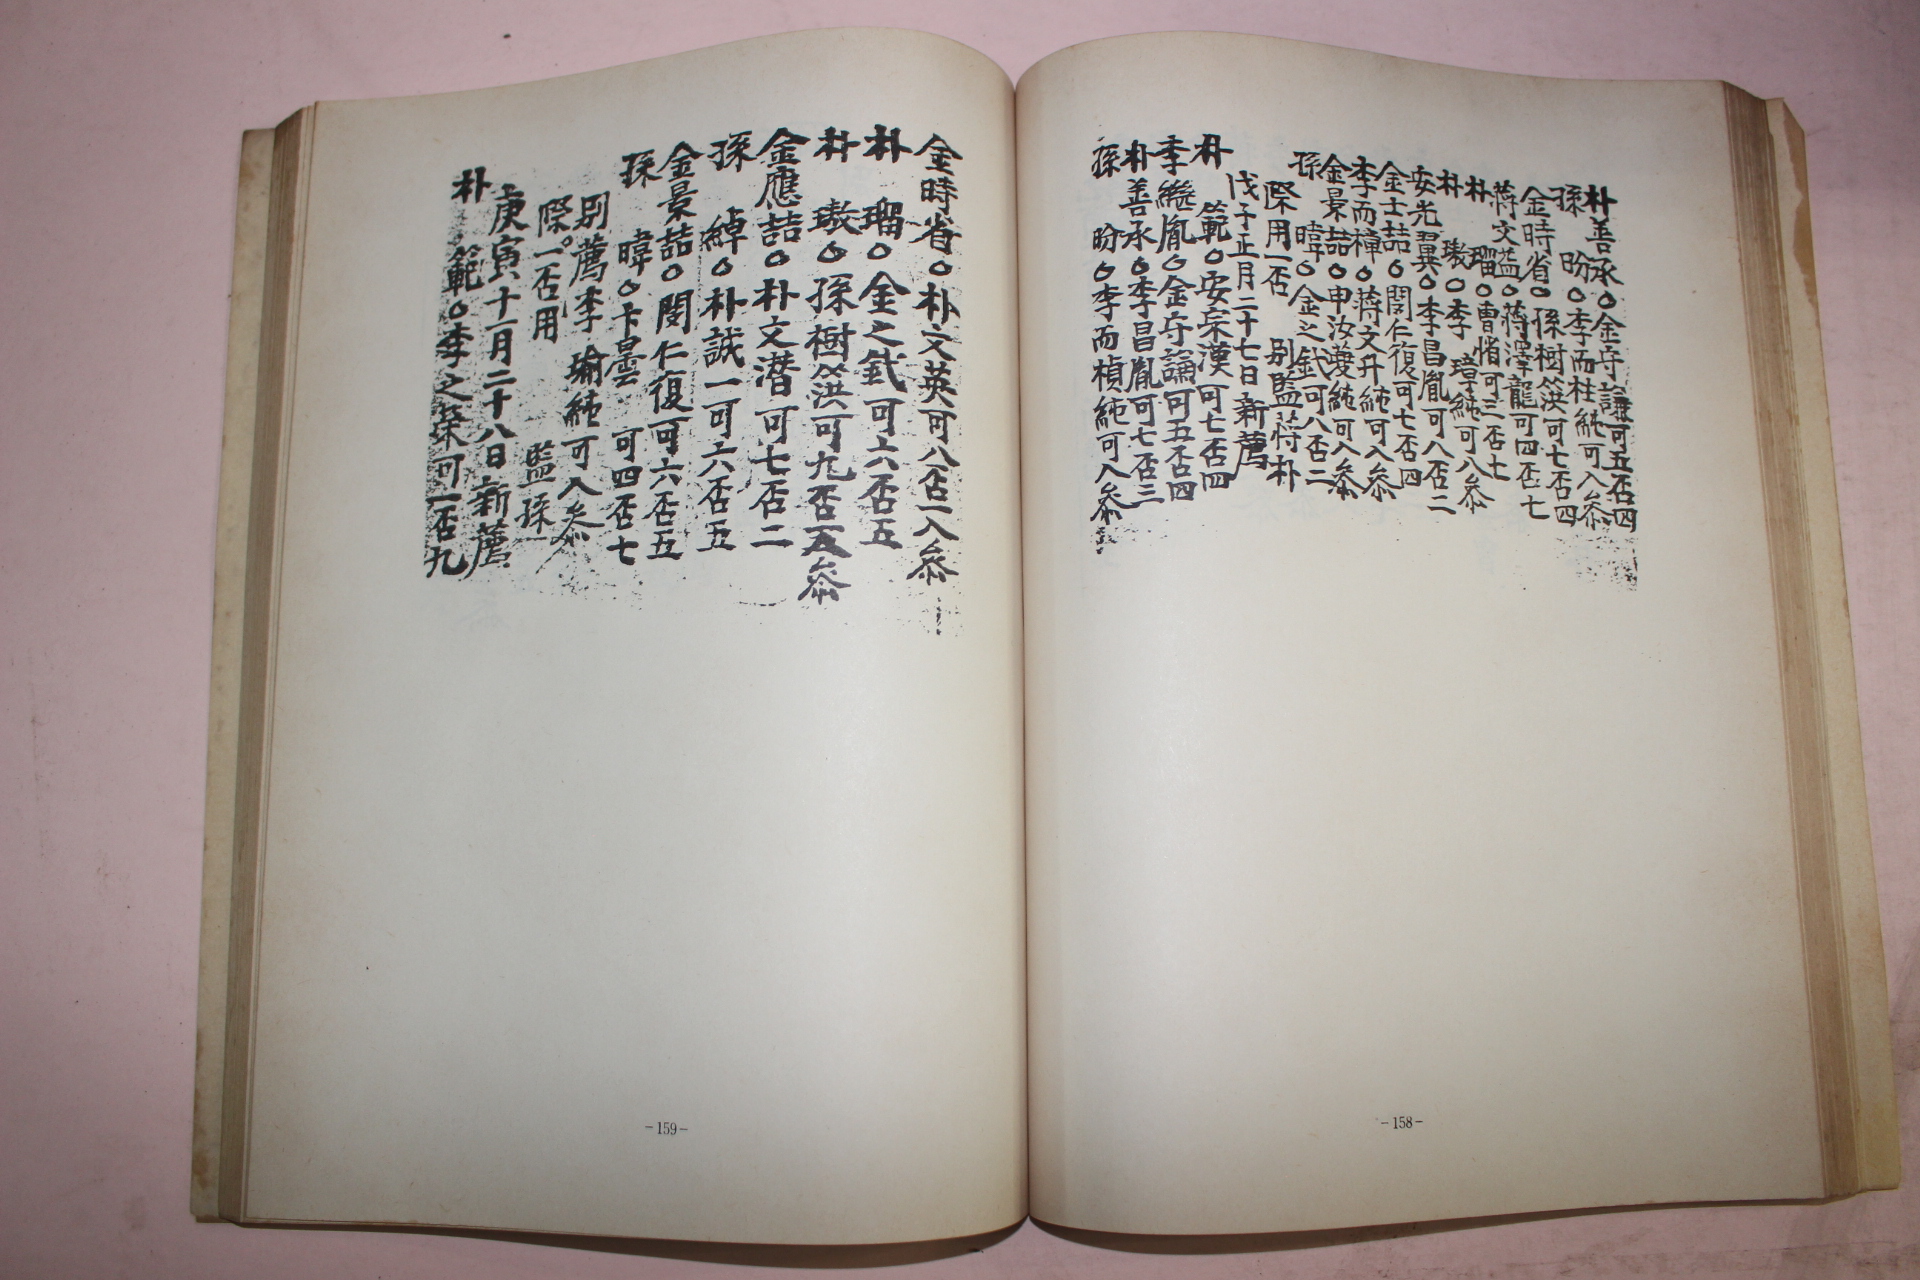 朴善承○金守謙可五否四
孫 昐○李而柱純可入叅
金時省○孫樹䈣可七否四
蔣文益○蔣澤龍可四否七
朱 瑠○曺惰可三否七
朴 璈○李 璋純可入叅
安光翼○李昌胤可八否二
金士喆○閔仁復可七否四
李而樟○蔣文升純可入叅
金景喆○申汝蘷純可入叅
孫 暐○金之釴可八否二
際用一否 別監蔣朴
戊子正月二十七日新薦
朴 範○安宗漢可七否四
李繼胤○金守論可五否四
朴善承○李昌胤可七否三
孫 昐○李而楨純可入叅
-158-
金時省○朴文英可八否一入叅
朴 瑠○金之釴可六否五
朴 璈○孫樹䈣可九否五叅
金應喆○朴文潜可七否二
孫 綽○朴誠一可六否五
金景喆○閔仁復可六否五
孫 暐○卞曇 可四否七
別薦李 瑜純可入叅
際一否用 監孫
庚寅十一月二十八日新薦
朴 範○李之琛可一否九
-159-